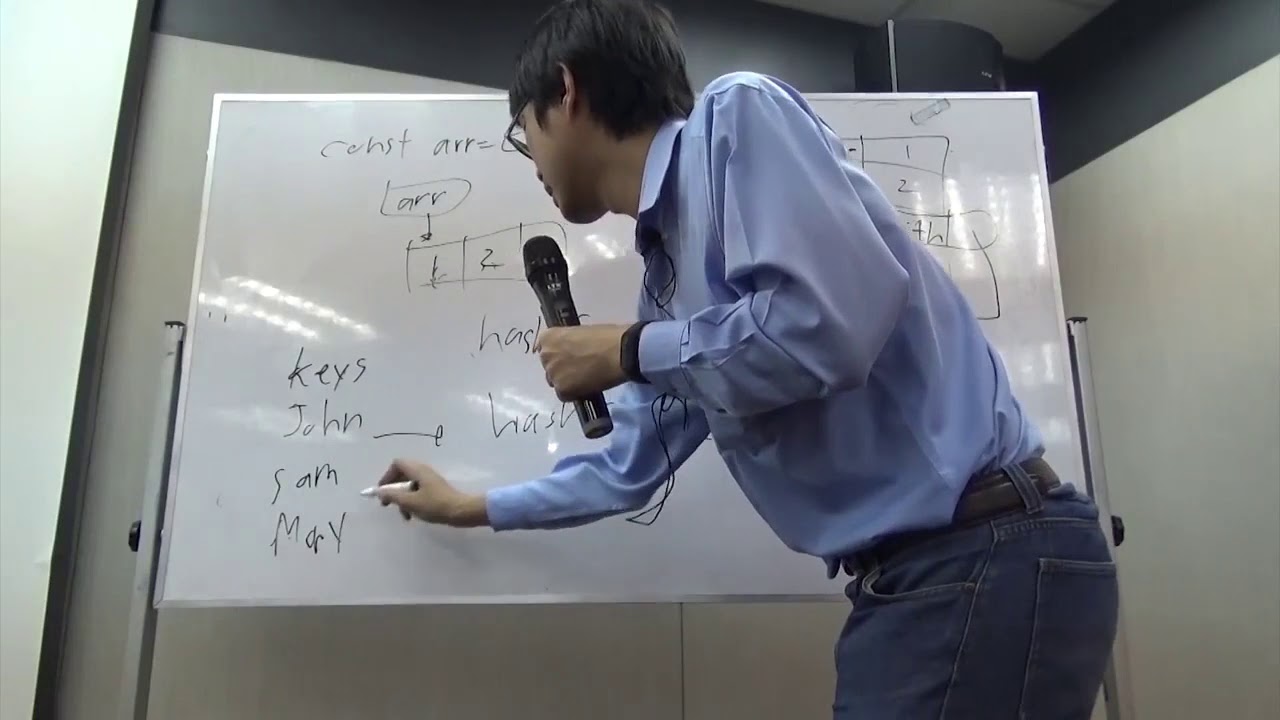 const arr=
arr
1 2
1
2
hash
keys
John hash
sam
Mary